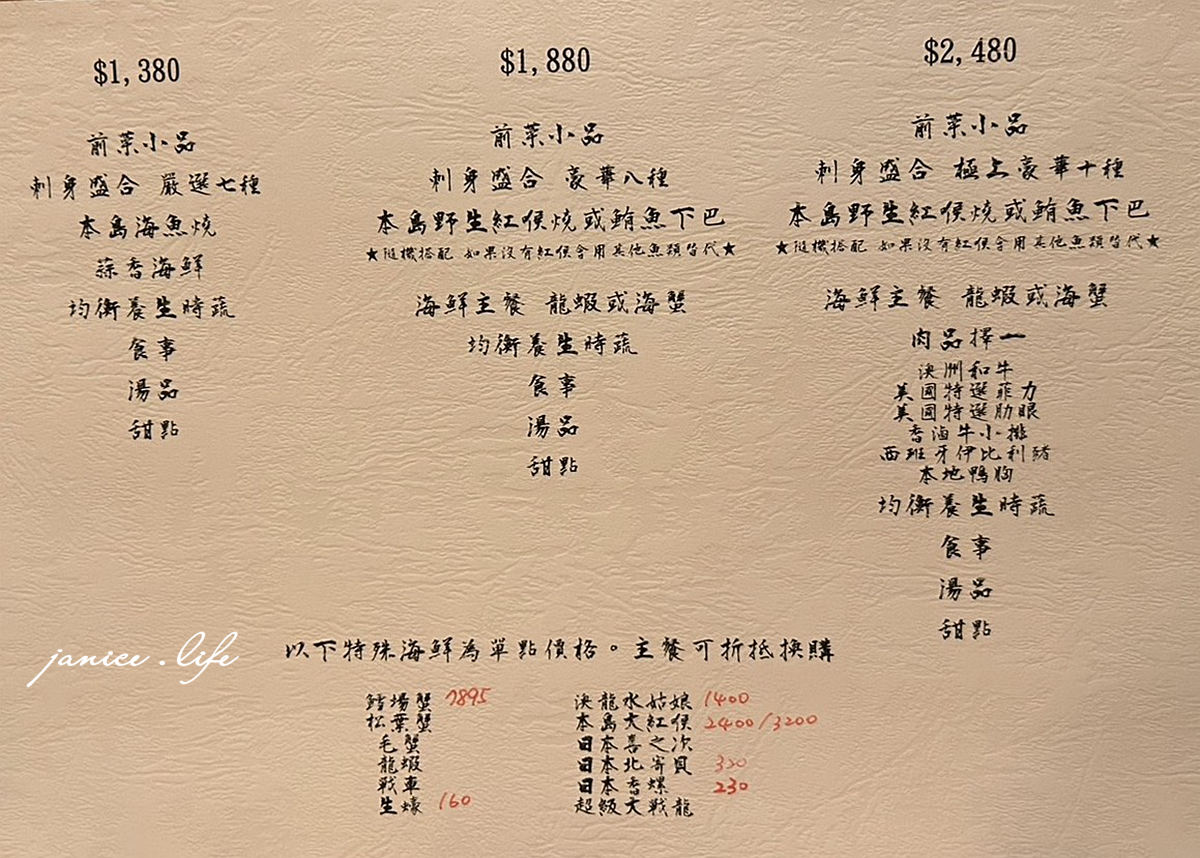 $1,380
前菜小品
刺身盛合 嚴選七種
本島海魚燒
蒜香海鮮
均衡養生時蔬
食事
湯品
甜點
$1,880
前菜小品
刺身盛合 豪華八種
本島野生紅喉燒或鮪魚下巴
★隨機搭配 如果沒有紅喉會用其他魚類替代★
海鮮主餐 龍蝦或海蟹
均衡養生時蔬
食事
湯品
甜點
$2,480
前菜小品
刺身盛合 極上豪華十種
本島野生紅喉燒或鮪魚下巴
★隨機搭配 如果沒有紅喉會用其他魚類替代★
海鮮主餐 龍蝦或海蟹
肉品擇一
澳洲和牛
美國特選菲力
美國特選肋眼
香滷牛小排
西班牙伊比利豬
本地鴨胸
均衡養生時蔬
食事
湯品
甜點
janice.life
以下特殊海鮮為單點價格。主餐可折抵換購
鱈場蟹 7895
松葉蟹
毛蟹
龍蝦
戰車
生蠔 160
澳龍水姑娘 1400
本島大紅喉 2400/3200
日本喜之次
日本北寄貝 320
日本香螺 230
超級大戰龍